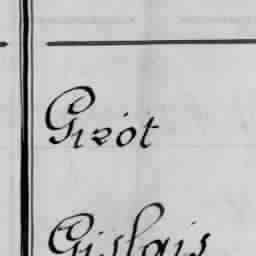 Griot
Gislais